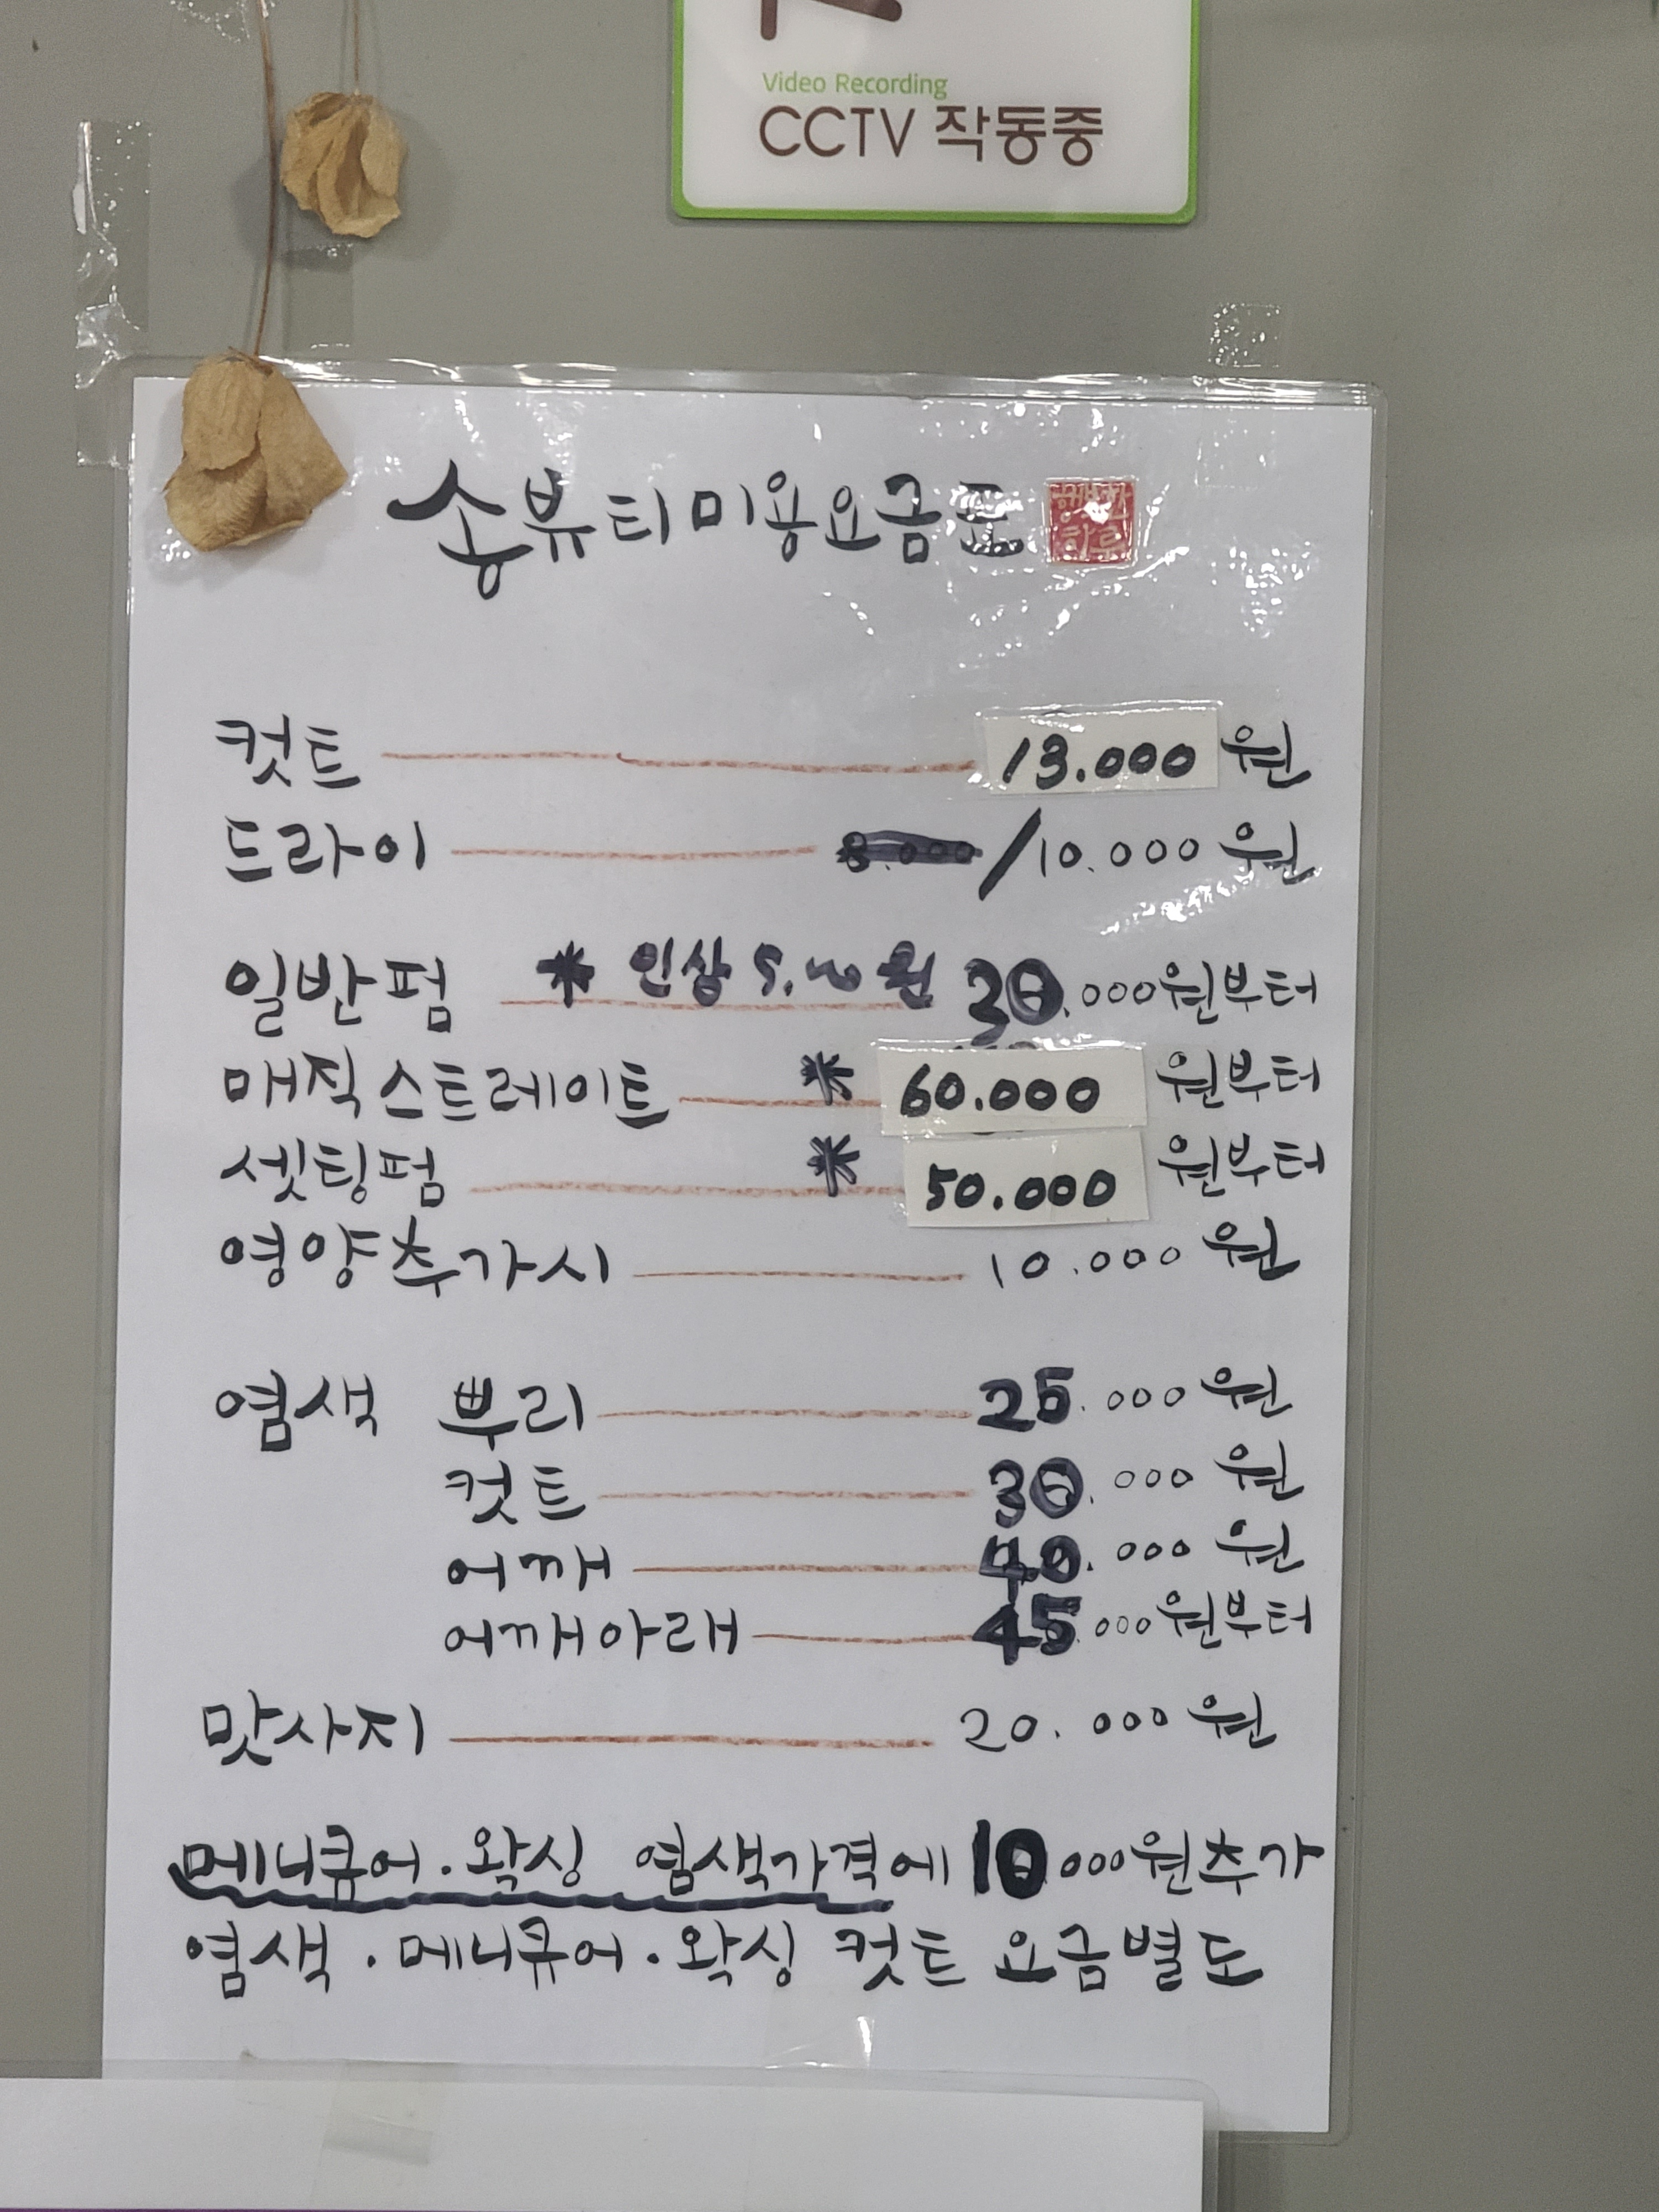 Video Recording
CCTV 작동중
송뷰티미용요금표
행복한
하루
컷트 13.000 원
드라이 8.000 / 10.000 원
일반펌 * 인상 30.000원부터
매직스트레이트 * 60.000 원부터
셋팅펌 * 50.000 원부터
영양추가시 10.000 원
염색 뿌리 25.000 원
컷트 30.000 원
어깨 40.000 원
어깨아래 45.000원부터
맛사지 20.000 원
메니큐어.왁싱 염색가격에 10000원추가
염색.메니큐어.왁싱 컷트 요금별도